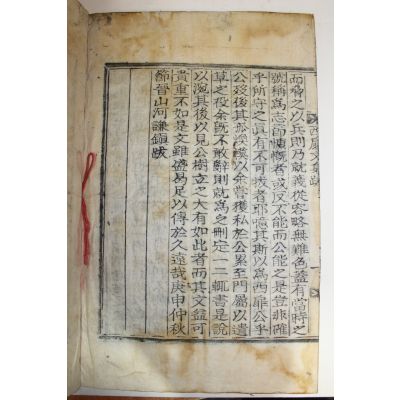 西扉文集跋
而脅之以兵則乃就義從容略無難色蓋有當時之
號稱爲志節慷慨者或反不能而公能之是豈非確
乎所守之眞有不可拔者耶噫其斯以爲西扉公乎
公歿後其孫漢溪以余嘗獲私於公累至門屬以遺
草之役余旣不敢辭則就爲之刪定一二輒書是說
以寘其後以見公樹立之大有如此者而其文益可
貴重不如是文雖盛曷足以傳於久遠哉庚申仲秋
節晉山河謙鎭跋